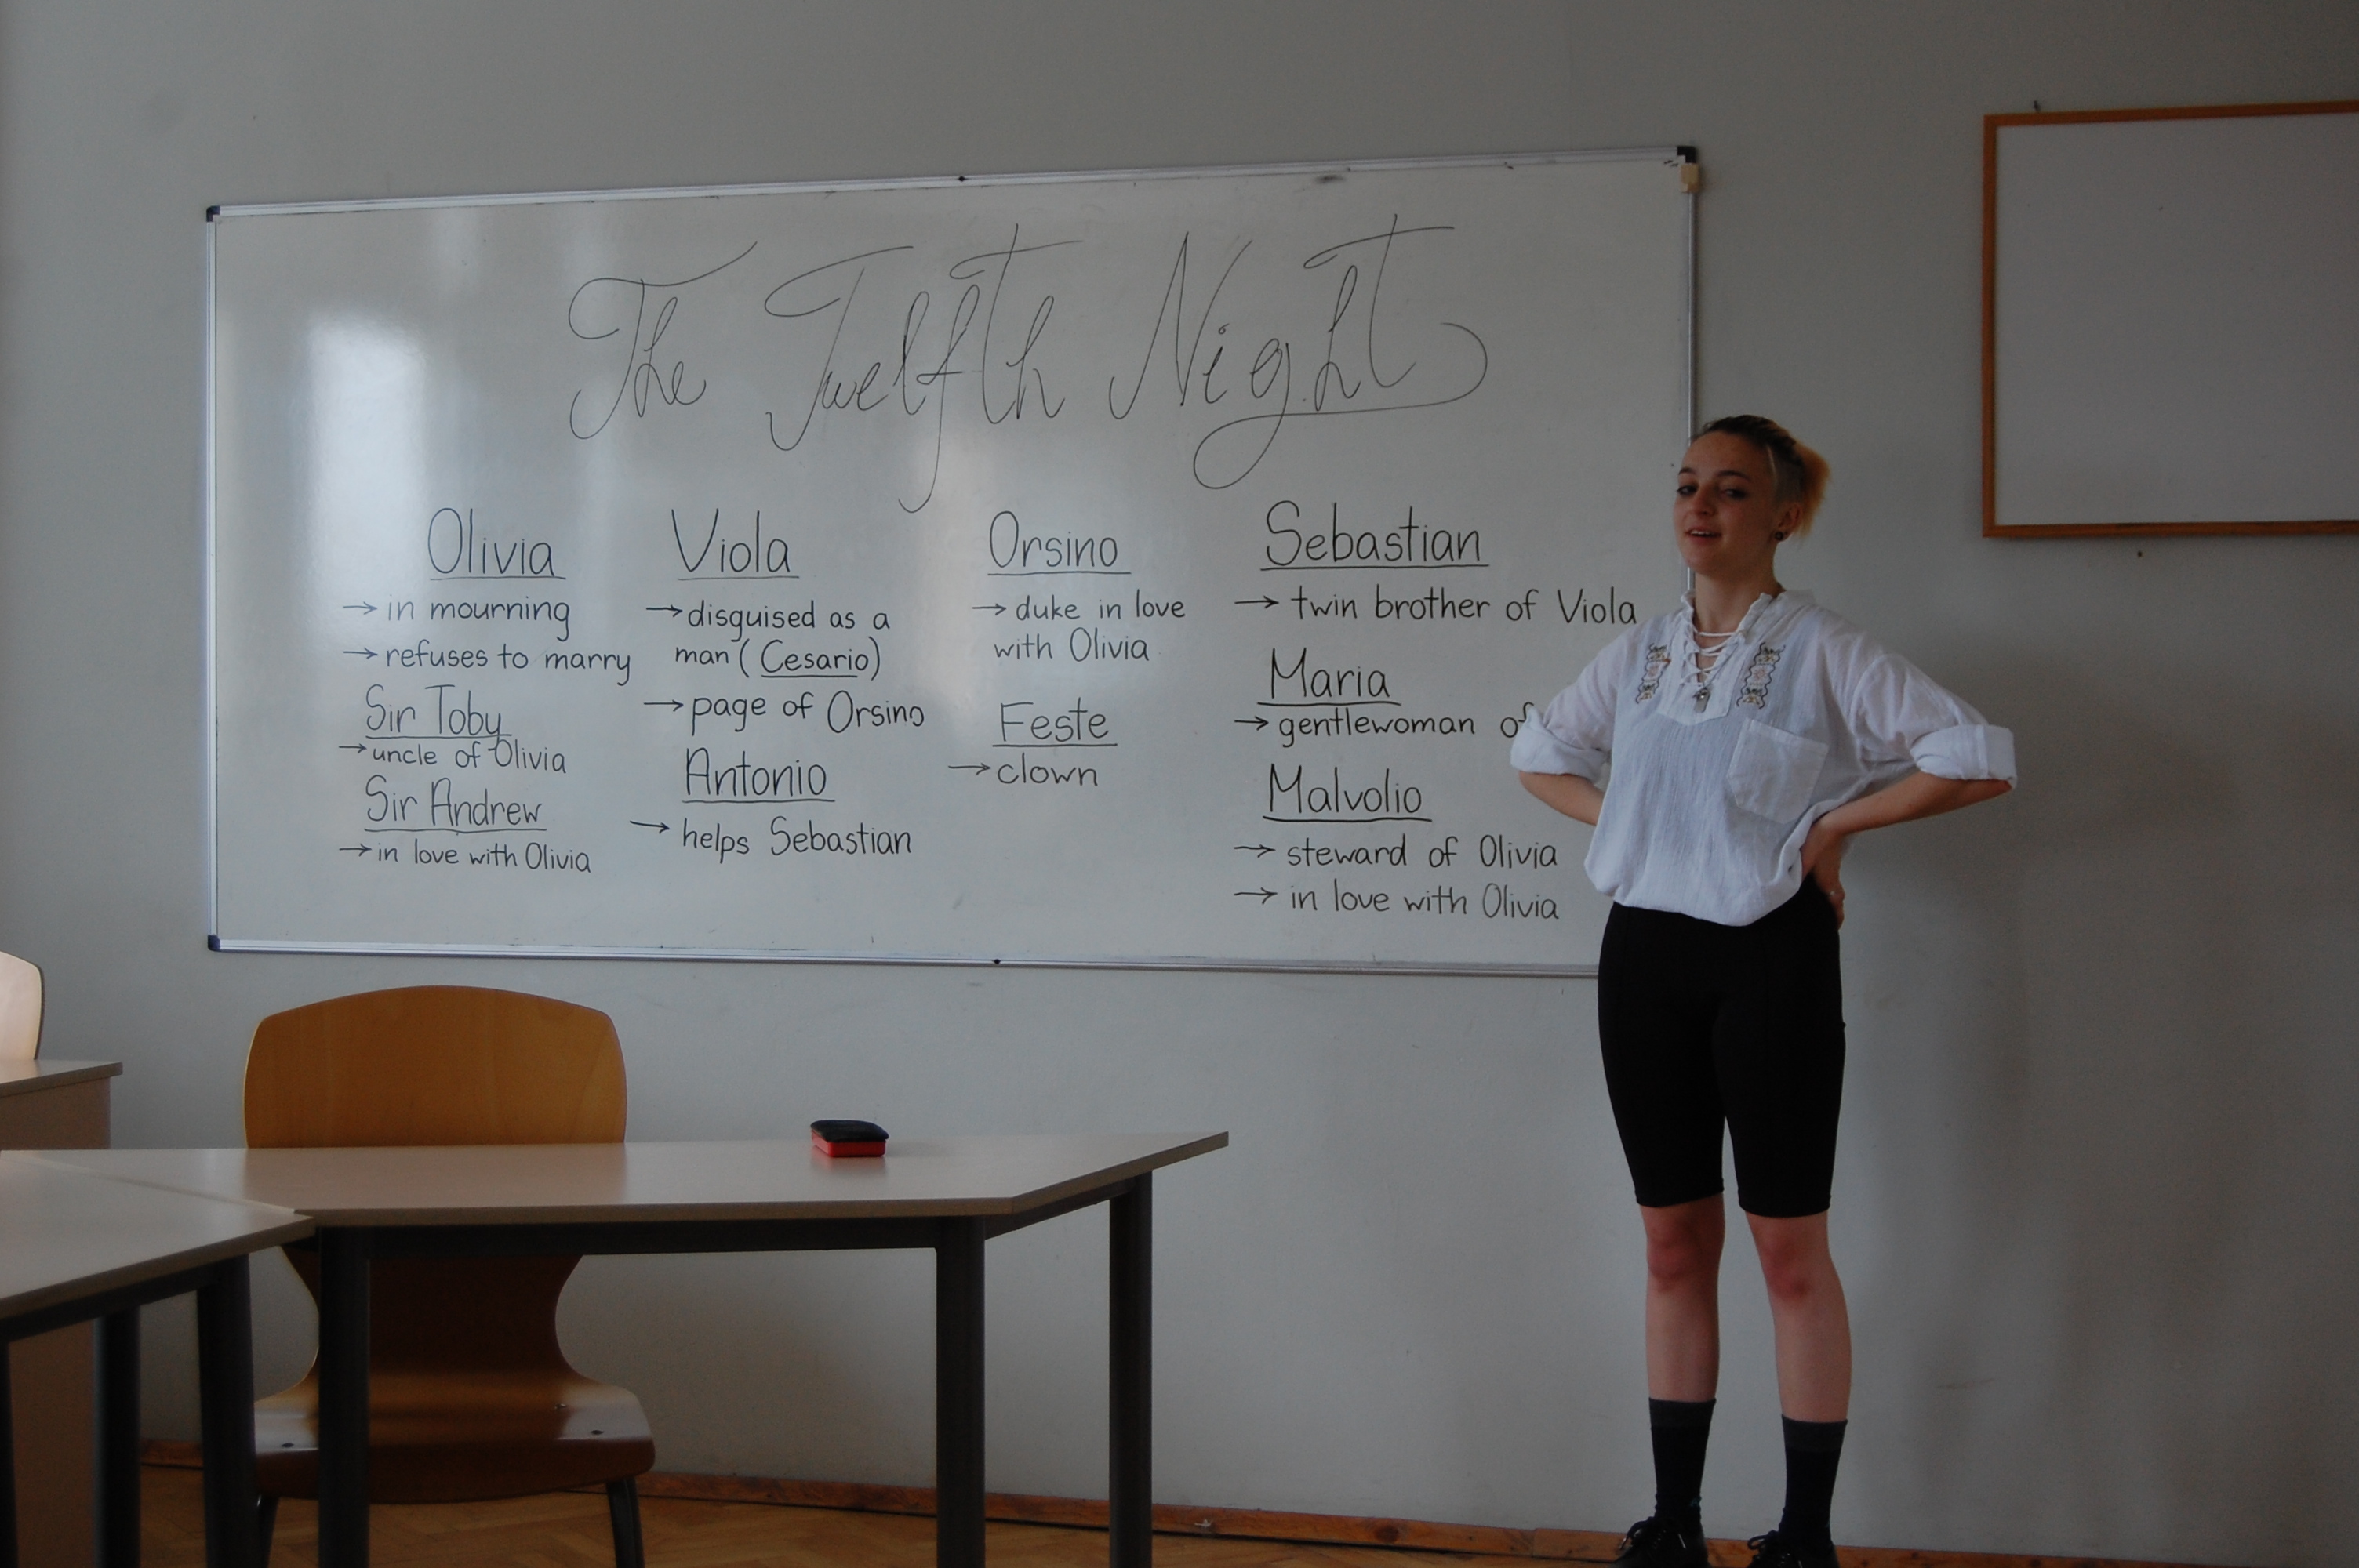 The Twelfth Night
Olivia
→ in mourning
→ refuses to marry
Sir Toby
→ uncle of Olivia
Sir Andrew
→ in love with Olivia
Viola
→ disguised as a
man (Cesario)
→ page of Orsino
Antonio
→ helps Sebastian
Orsino
→ duke in love
with Olivia
Feste
→ clown
Sebastian
→ twin brother of Viola
Maria
→ gentlewoman of
Malvolio
→ steward of Olivia
→ in love with Olivia